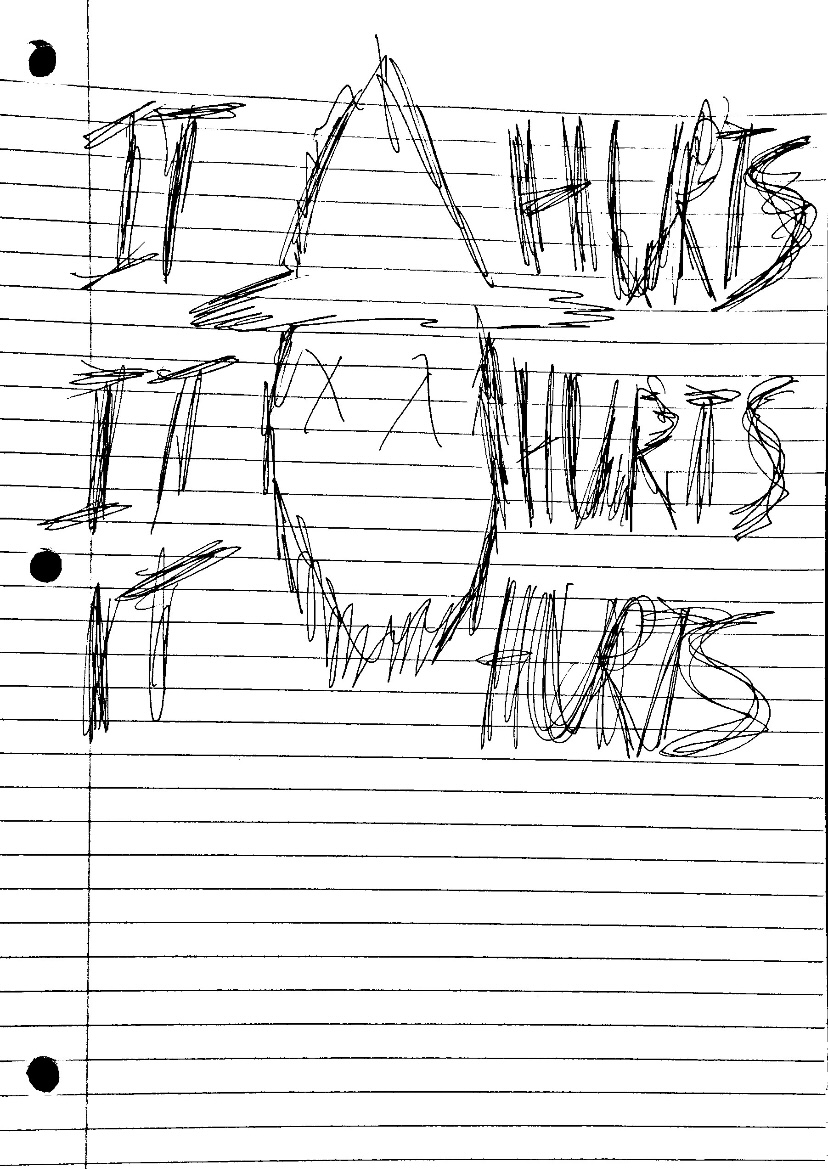 IT HURTS
IT HURTS
IT HURTS